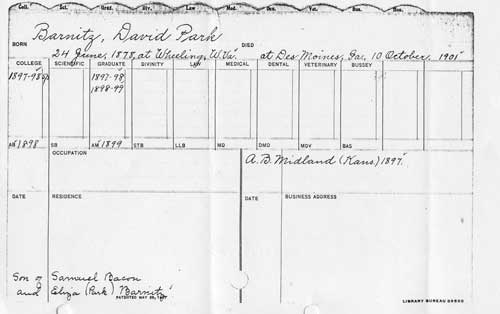 Coll. Sci. Grad. Div. Law Med. Den. Vet. Bus.
Barnitz, David Park
BORN DIED
24 June, 1878, at Wheeling, W.Va. at Des Moines, Ia., 10 October, 1901
COLLEGE SCIENTIFIC GRADUATE DIVINITY LAW MEDICAL DENTAL VETERINARY BUSSEY
1897-98 1897-98
1898-99
AB 1898 SB AM 1899 STB LLB MD DMD MDV BAS
OCCUPATION A.B. Midland (Kans.) 1897.
DATE RESIDENCE DATE BUSINESS ADDRESS
Son of Samuel Bacon
and Eliza (Park) Barnitz
PATENTED MAY 25, LIBRARY BUREAU